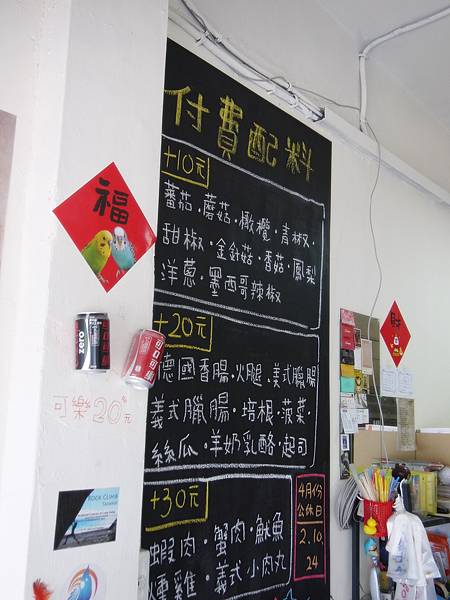 付費配料
+10元
蕃茄·蘑菇·橄欖·青椒·
甜椒·金針菇·香菇·鳳梨
洋蔥·墨西哥辣椒
+20元
德國香腸·火腿·美式臘腸
義式臘腸·培根·菠菜·
絲瓜·羊奶乳酪·起司
+30元
蝦肉·蟹肉·魷魚
燻雞·義式小肉丸
4月份
公休日
2.10.
24
福
zero
可口可樂
可樂20元
ROCK CLIMB
財